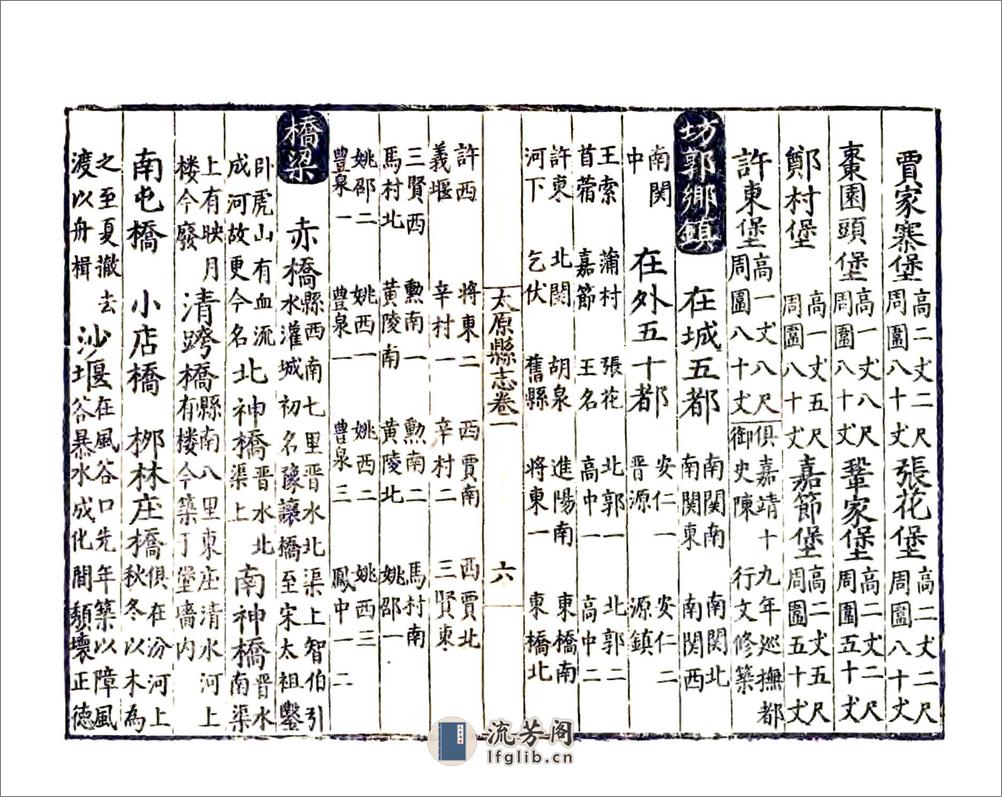 賈家寨堡 高二丈二尺 周圍八十丈 張花堡 高二丈二尺 周圍八十丈
棗園頭堡 高一丈八尺 周圍八十丈 鞏家堡 高二丈二尺 周圍五十丈
鄭村堡 高一丈五尺 周圍八十丈 嘉節堡 高二丈五尺 周圍五十丈
許東堡 高一丈八尺 周圍八十丈 俱嘉靖十九年巡撫都御史陳 行文修築
坊郭鄉鎮 在城五都 南関南 南関北 南関東 南関西
南関中 在外五十都 安仁一 安仁二 晋源 源鎮
王索 蒲村 張花 北郭一 北郭二
苜蓿 嘉節 王名 高中一 高中二
許東 北関 胡泉 進陽南 東橋南
河下 乞伏 舊縣 將東一 東橋北
太原縣志卷一 六
許西 將東二 西賈南 西賈北
義堰 辛村一 辛村二 三賢東
三賢西 勲南一 勲南二 馬村南
馬村北 黃陵南 黃陵北 姚郡一
姚郡二 姚西一 姚西二 姚西三
豊泉一 豊泉一 豊泉三 鳳中一 二
橋梁 赤橋 縣西南七里晋水北渠上智伯引水灌城初名豫讓橋至宋太祖鑿
卧虎山有血流成河故更今名 北神橋 晋水北渠上 南神橋 晋水南渠
上有映月楼今廢 清跨橋 縣南八里東庄清水河上有楼今築于堡內
南屯橋 小店橋 栁林庄橋 俱在汾河上秋冬以木為
之至夏撤去渡以舟楫 沙堰 在風谷口先年築以障風谷暴水成化間頽壞正德
流芳阁
lfglib.cn